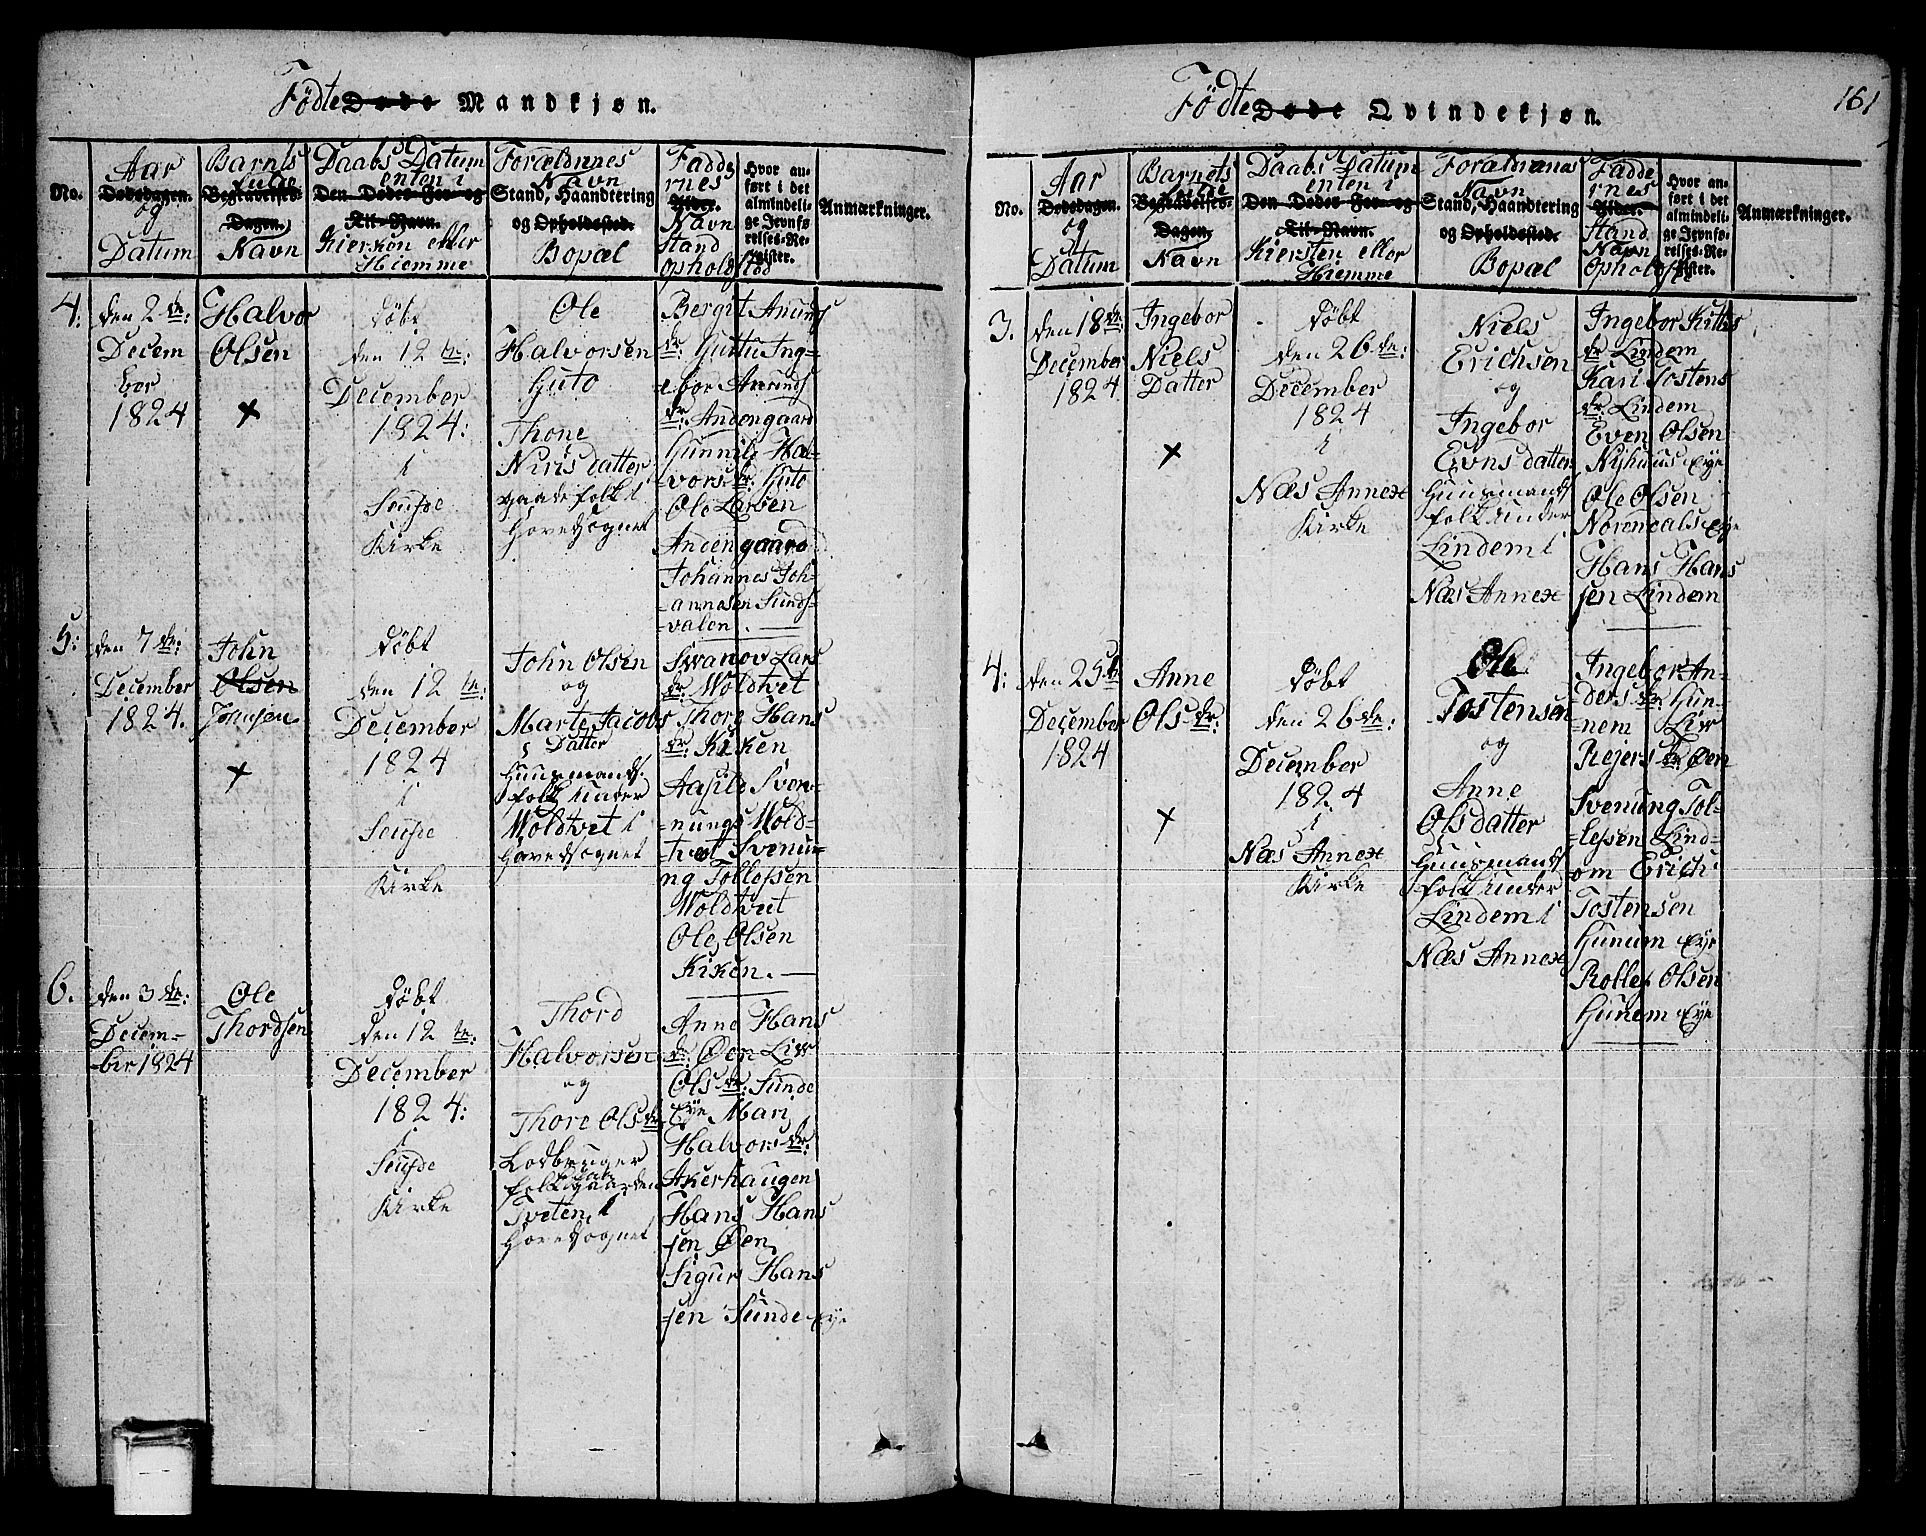 Födte Døde Mandkjøn.
No.
Aar
Dødsdagen.
og
Datum
Barnets
fulde
Begravelses-
Dagen.
Navn
Daabs Datum
enten i
Den Dødes For- og
Til-Navn.
Kierken eller
Hiemme
Forældrnes
Navn
Stand, Haandtering
og Opholdssted.
Bopæl
Fadde
rnes
Alder.
Navn
Stand
Opholdstæd
Hvor an-
ført i det
almindeli-
ge Jevnfø-
relses-Re-
gister.
Anmærkninger.
4:
den 2de:
Decem
ber
1824
Halvor
Olsen
+
Døbt
den 12te:
December
1824:
i
Seufde
Kirke
Ole
Halvorsen
Huto
Thone
Niris datter
gaardefolk i
Hovedsognet
Bergit Anunds
dr: Hutu Ing-
ebor Anunds
dr: Andengaard
Gunnild Hal
vors dr: Huto
Ole Larsen
Andengaard
Johannes Joh-
-annesen Sunds-
-valen.
5:
den 7de:
December
1824.
John
Olsen
Johnsen
+
Døbt
den 12te:
December
1824
i
Seufde
Kirke
John Olsen
og
Marte Jacobs
Datter
Huusmands-
folk under
Woldtvet i
Hovedsognet
Swanov Lars
dr: Woldtvet
Thore Hans
dr: Kiken
Aasild Sven-
-nungs Wold-
-tvet Svenu-
ng Tollofsen
Woldtvet
Ole Olsen
Kiken.
6.
den 3de:
Decem-
-ber 1824
Ole
Thordsen
Døbt
den 12te:
December
1824:
i
Seufde
Kirke
Thord
Halvorsen
og
Thore Olsdr
Lodbruger
folk paa gaarden
Tveten i
Hovedsognet
Anne Hans
dr: Øen Liv
Ols dr: Sunde
Eye Mari
Halvors dr:
Akerhaugen
Hans Hans
sen Øen
Sigurs Hans
-sen Sunde Eye
161
Födte Døde Qvindekjøn.
No.
Aar
Dødsdagen.
og
Datum
Barnets
fulde
Begravelses-
Dagen.
Navn
Daabs Datum
enten i
Den Dødes For- og
Til-Navn.
Kiersten eller
Hiemme
Forældrenes
Navn
Stand, Haandtering
og Opholdssted.
Bopæl
Fadde
rnes
Alder.
Stand
Navn
Opholdste
Hvor an-
ført i det
almindeli-
ge Jevnfø-
relses-Re-
gister.
Anmærkninger.
3.
den 18de:
December
1824
Ingebor
Niels
Datter
+
Døbt
den 26de:
December
1824
i
Næs Annex
Kirke
Niels
Erichsen
og
Ingebor
Evns datter
Huusmands
folk under
Lindem i
Næs Annex
Ingebor Kittis
dr: Lindem
Kari Tostens
dr: Lindem
Even Olsen
Nyhuus Eye
Ole Olsen
Norendals Eye
Hans Hans
sen Lindem
4:
den 25de
December
1824
Anne
Olsdr:
+
Døbt
den 26de:
December
1824
i
Næs Annex
Kirke
Ole
Tostensen
og
Anne
Olsdatter
Huusmands
folk under
Lindem i
Næs Annex
Ingebor An-
ders dr: Hun-
nem Liv
Rejers dr: Øen
Svenung Tol-
-lefsen Lind-
om Erich
Tostensen
Hunum Eye
Rollef Olsen
Hunem Eye